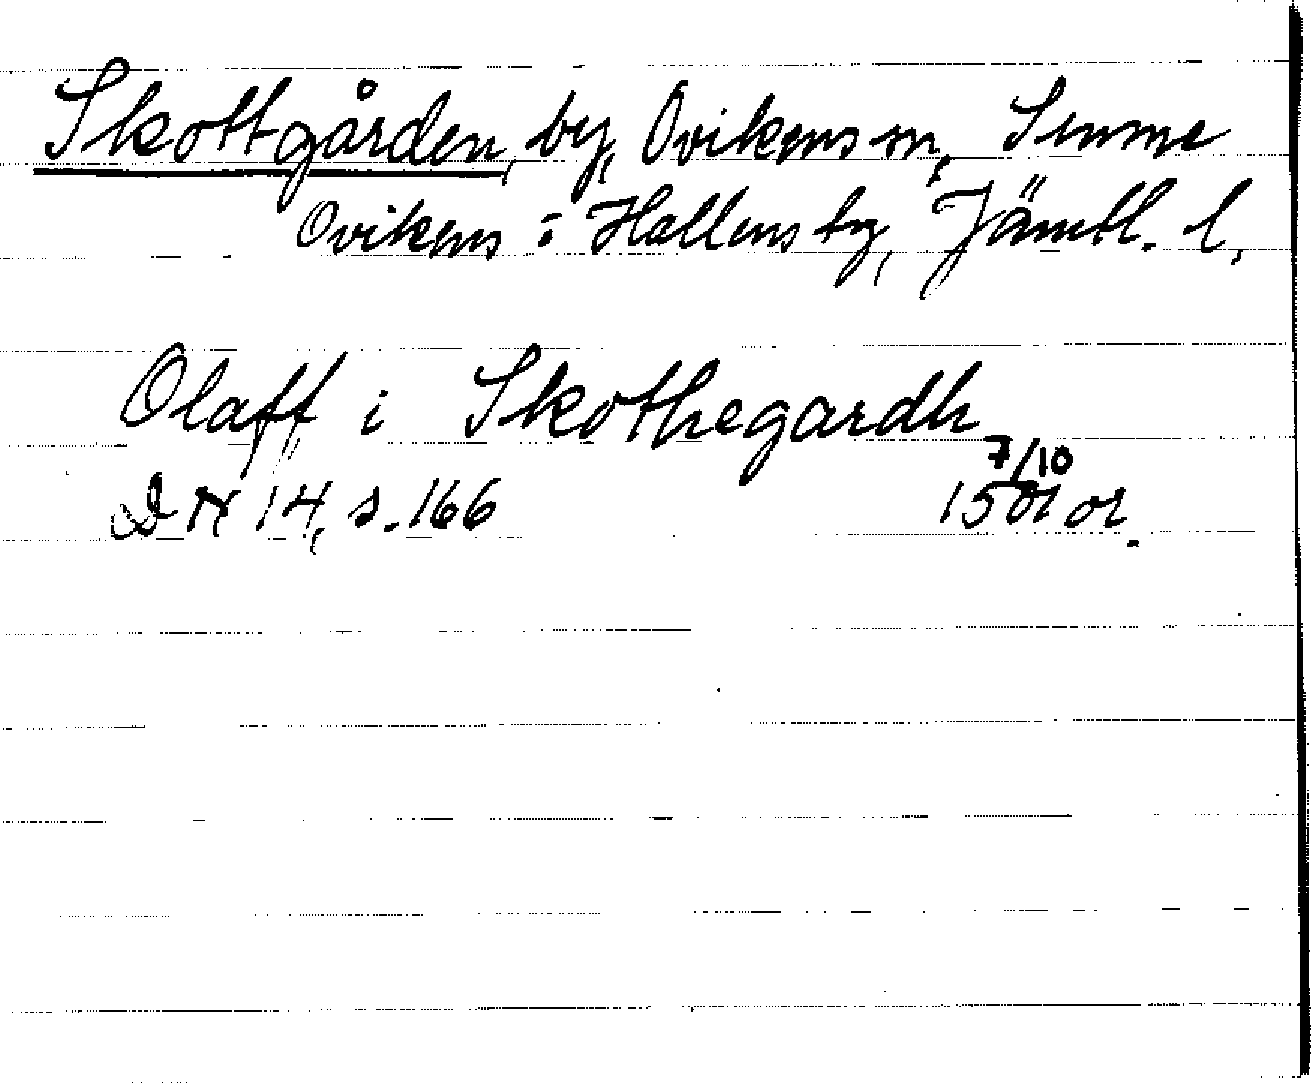 Skottgården, by, Ovikens sn, Sunne
Ovikens o Hallens tg, Jämtl. l.
Olaff i Skothegardh
7/10
DN 14, s. 166 1501 or.